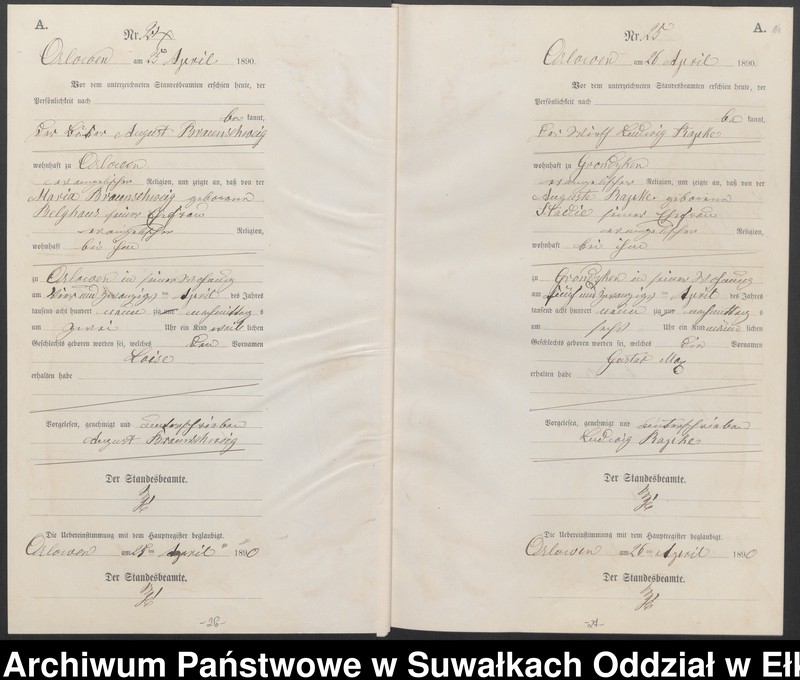 A.
Nr. 24
Orlowen am 25 April 1890.
Vor dem unterzeichneten Standesbeamten erschien heute, der
Persönlichkeit nach
be kannt,
der August Braunschweig
wohnhaft zu Orlowen
evangelischer Religion, und zeigte an, daß von der
Maria Braunschweig geborenen
Belghaus seiner Ehefrau
evangelischer Religion,
wohnhaft bei ihm
zu Orlowen in seiner Wohnung
am vier und zwanzigsten April des Jahres
tausend acht hundert neunzig nachmittags
um zwei Uhr ein Kind weib lichen
Geschlechts geboren worden sei, welches den Vornamen
Loise
erhalten habe
Vorgelesen, genehmigt und unterschrieben
August Braunschweig
Der Standesbeamte.
Die Uebereinstimmung mit dem Hauptregister beglaubigt.
Orlowen am April 1890
Der Standesbeamte.
-26-
A.
Nr. 25
Orlowen am 26 April 1890.
Vor dem unterzeichneten Standesbeamten erschien heute, der
Persönlichkeit nach
be kannt,
der Wirth Ludwig Rapke
wohnhaft zu Grondzken
evangelischer Religion, und zeigte an, daß von der
Auguste Rapke geborenen
seiner Ehefrau
evangelischer Religion,
wohnhaft bei ihm
zu Grondzken in seiner Wohnung
am fünf und zwanzigsten April des Jahres
tausend acht hundert neunzig nachmittags
um sechs Uhr ein Kind männ lichen
Geschlechts geboren worden sei, welches den Vornamen
Gustav Max
erhalten habe
Vorgelesen, genehmigt und unterschrieben
Ludwig Rapke
Der Standesbeamte.
Die Uebereinstimmung mit dem Hauptregister beglaubigt.
Orlowen am 26 April 1890
Der Standesbeamte.
Archiwum Państwowe w Suwałkach Oddział w Ełk